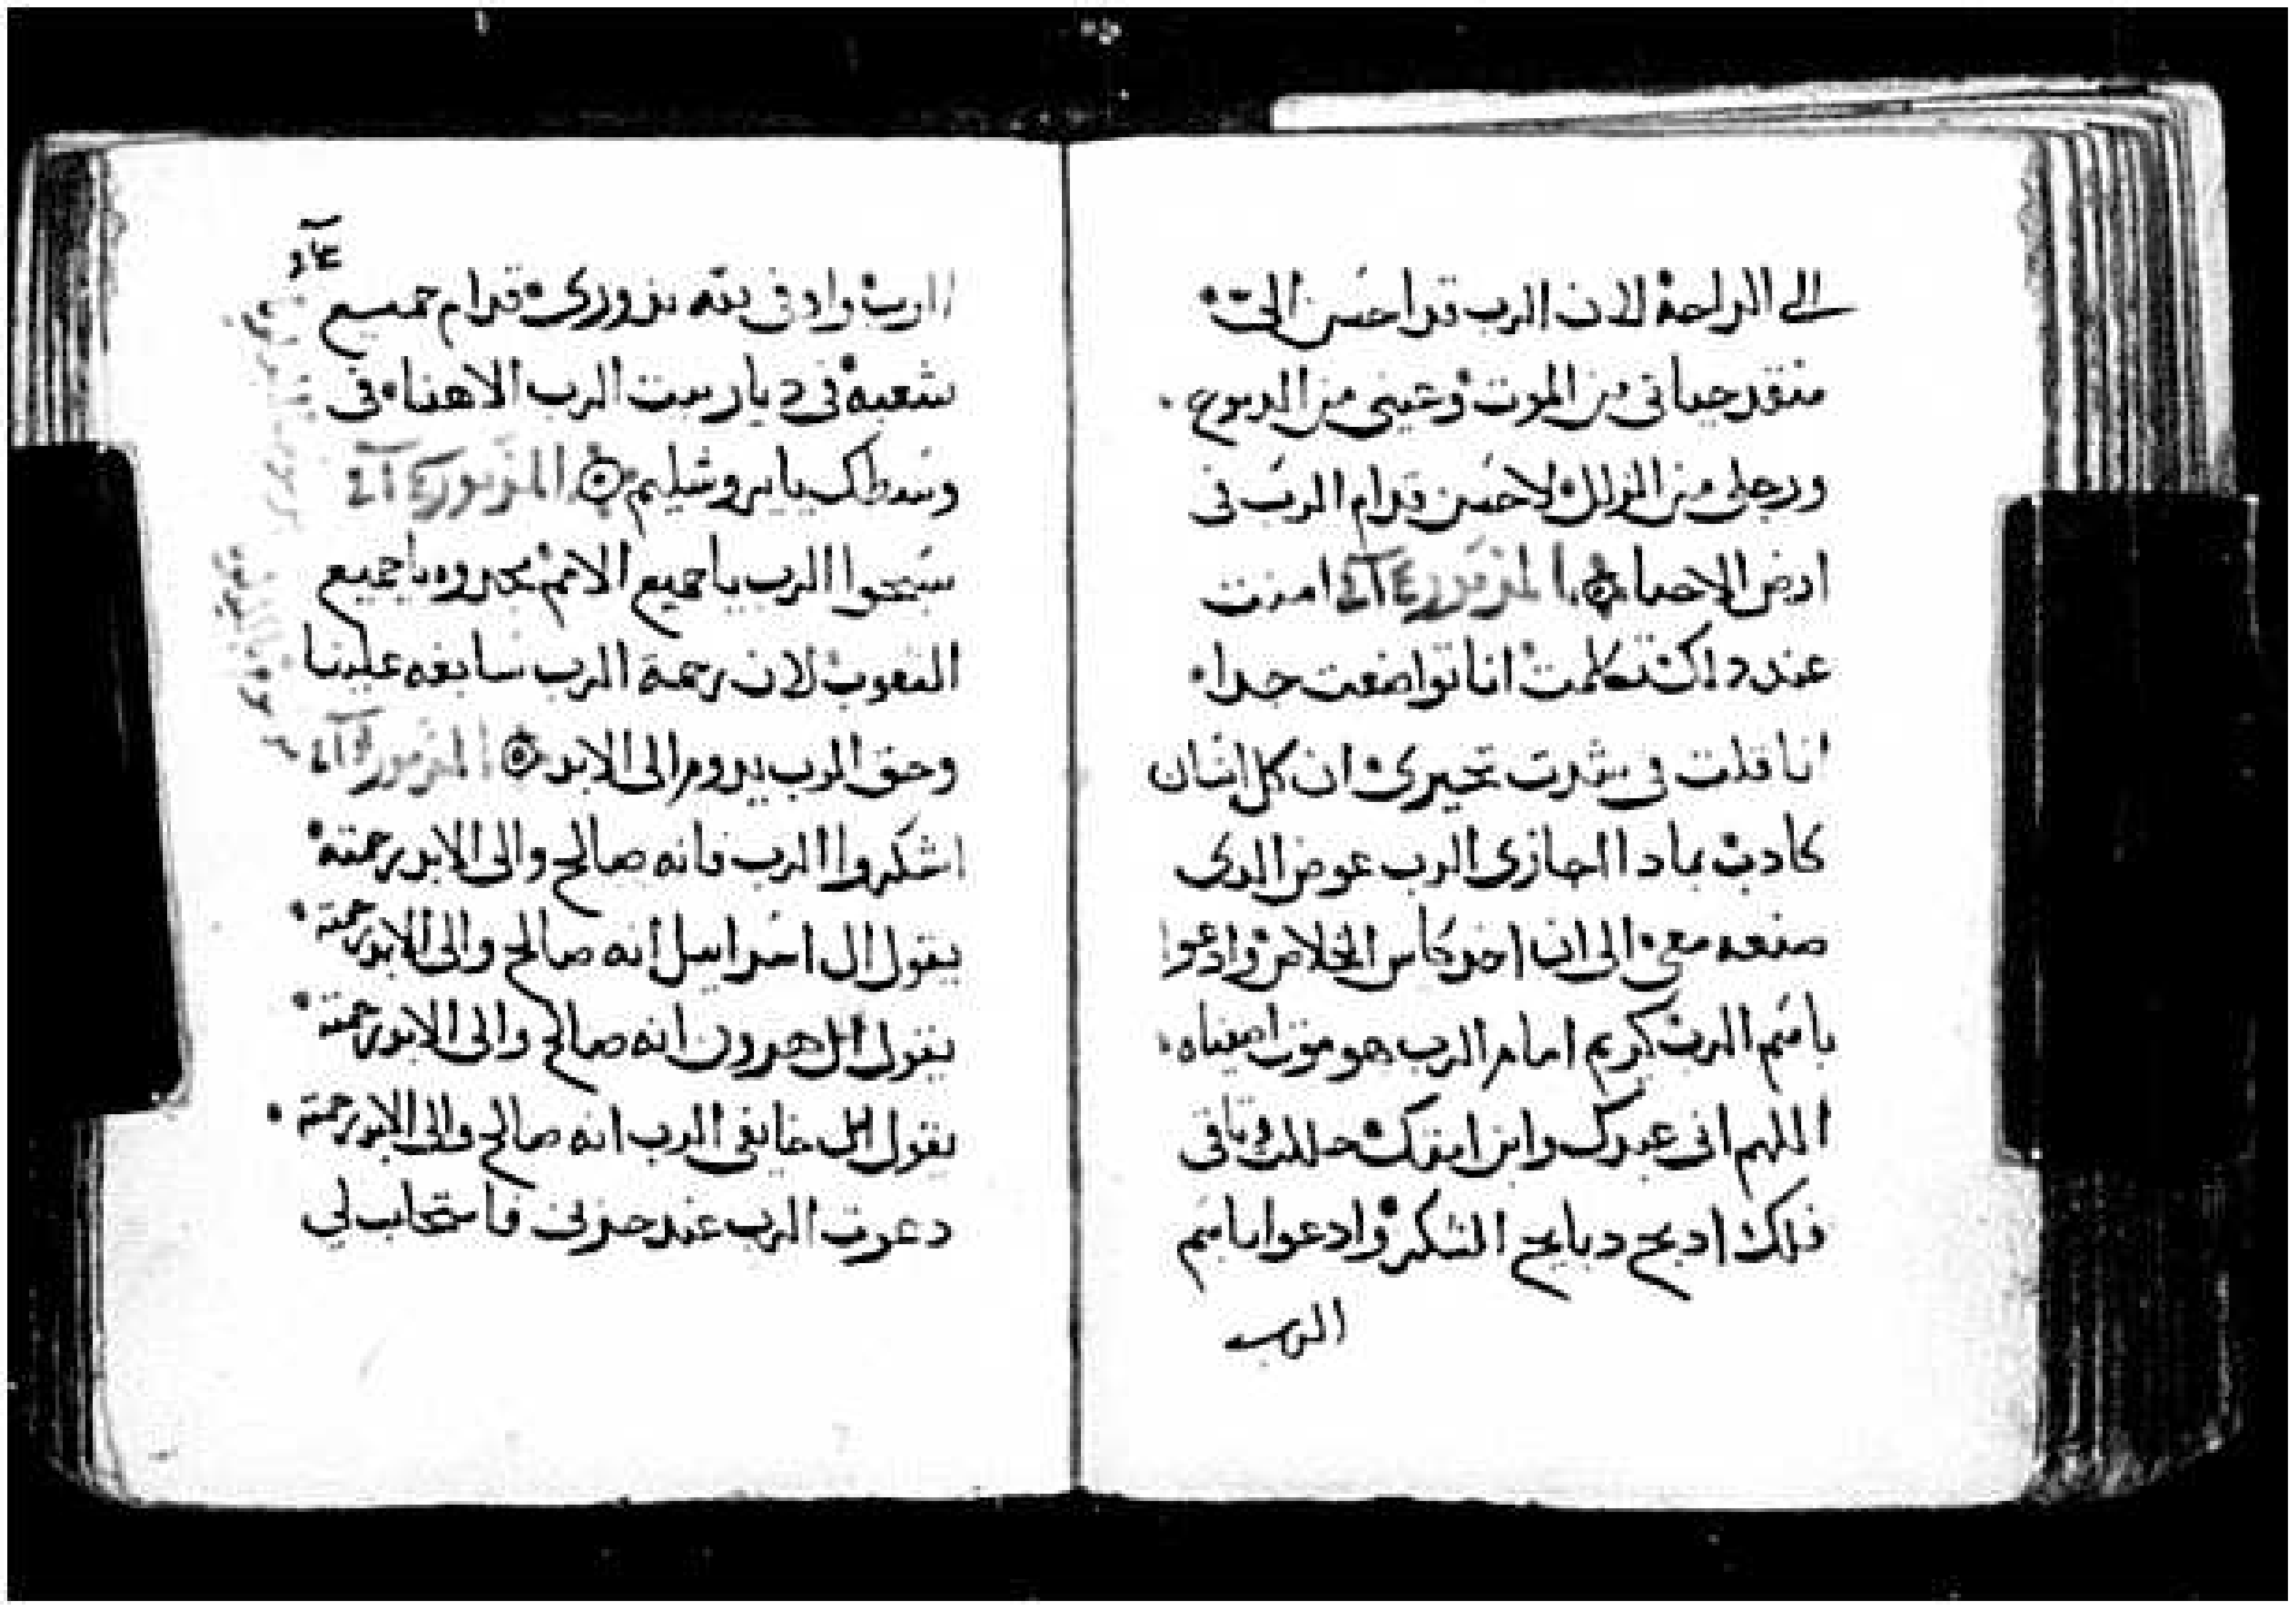 الي الراحة لان الرب قد احسن الي
منقد حياتي من الموت وعيني من الدموع
ورجلي من الزلل لاحسن قدام الرب في
ارض الاحيا المزمور امنت
عند دلك تكلمت انا تواضعت جدا
انا قلت في شدت تحيري ان كل انسان
كادب بمادا اجازي الرب عوض الدي
صنعه معي الي ان اخد كاس الخلاص وادعوا
باسم الرب كريم امام الرب هو موت اصفياه
اللهم اني عبدك وابن امتك حللت وتاقي
فلك ادبح دبايح الشكر وادعوا باسم
الرب
الرب واوفي لله نزوري قدام جميع
شعبه في ديار بيت الرب الاهنا في
وسطك يا يروشليم المزمور
سبحوا الرب يا جميع الامم مجدوه يا جميع
الشعوب لان رحمة الرب سابغه علينا
وحق الرب يدوم الى الابد المزمور
اشكروا الرب فانه صالح والى الابد رحمته
يقول ال اسراييل انه صالح والى الابد رحمته
يقول ال هرون انه صالح والى الابد رحمته
يقول كل خايفي الرب انه صالح والى الابد رحمته
دعوت الرب عند حزني فاستجاب لي